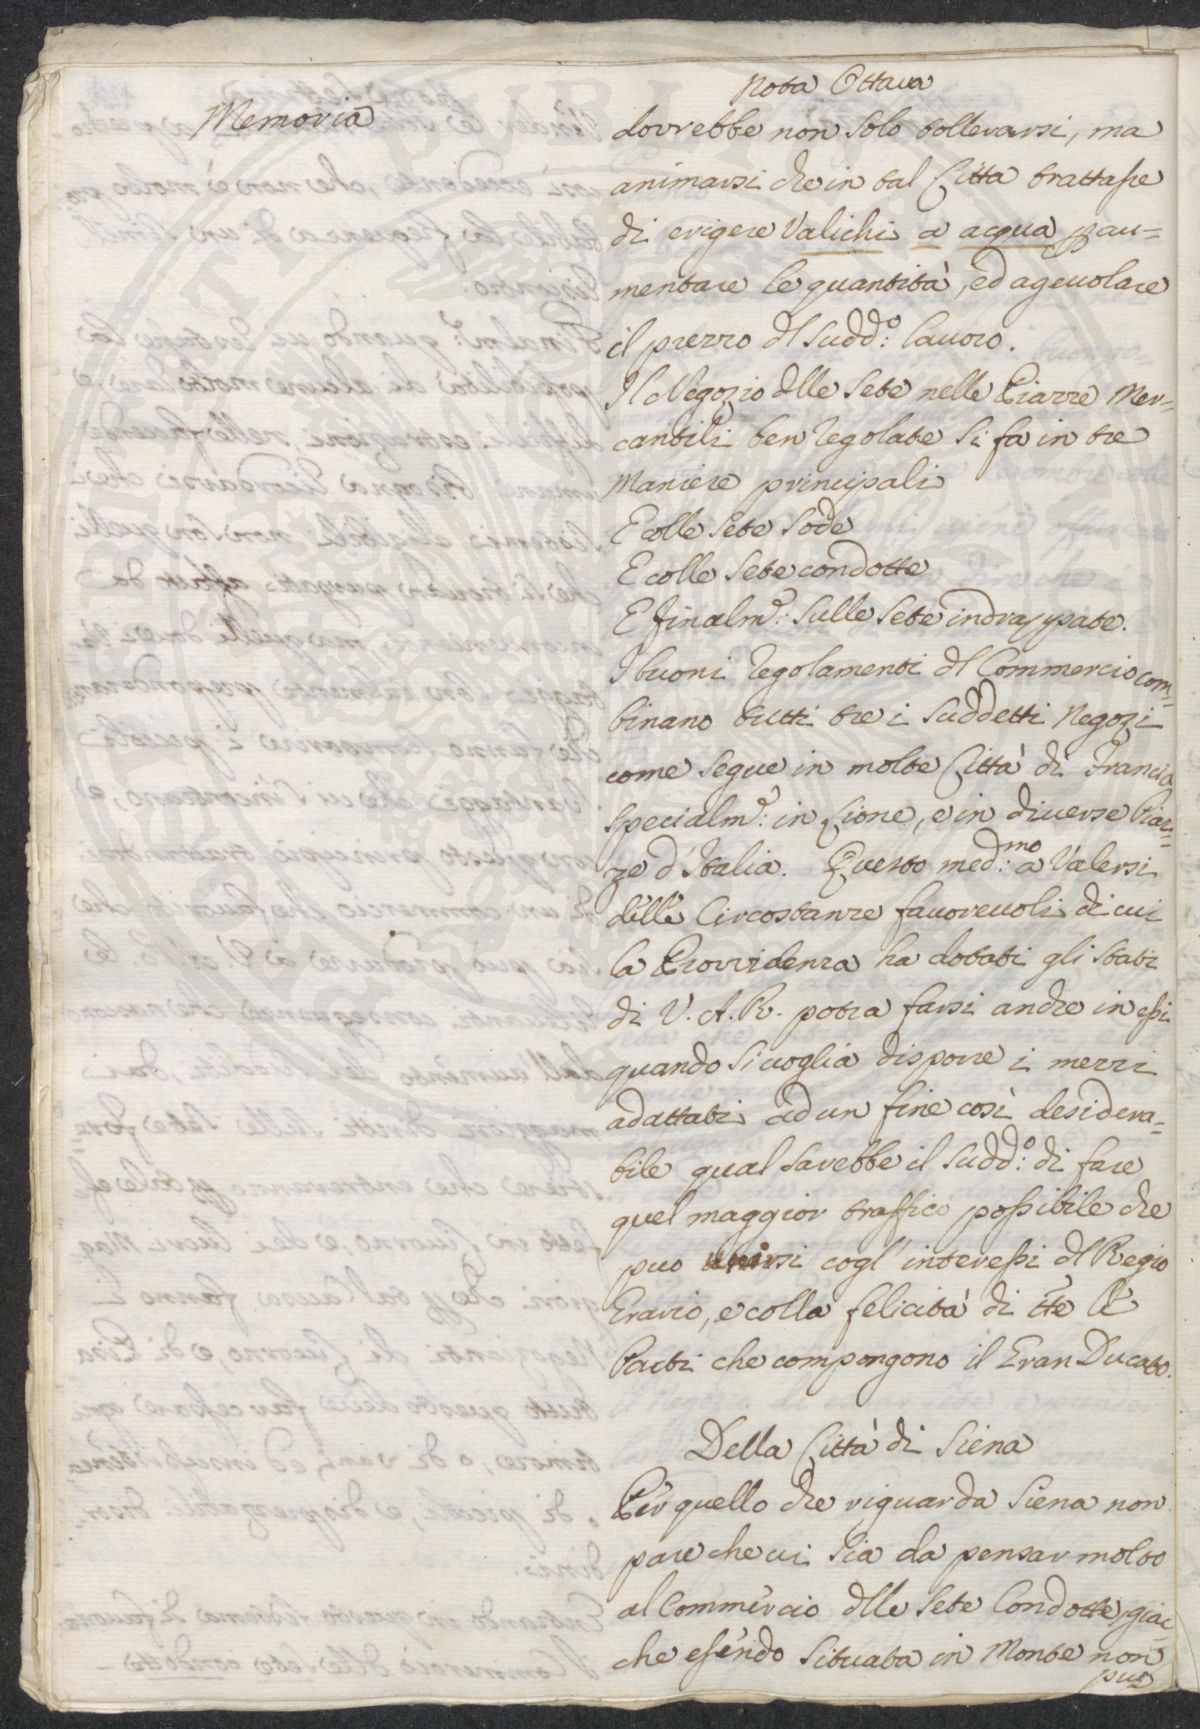 Nota Ottava
Memoria
dovrebbe non solo tollerarsi, ma
animarsi che in tal Città trattasse
di erigere Valichi a acqua p au=
mentare le quantità, ed agevolare
il prezzo dl Sudd:o lavoro.
Il Negozio dlle Sete nelle Piazze Mer=
cantili ben regolate si fa in tre
Maniere principali
E colle Sete Sode
E colle Sete condotte
E finalm.e: Sulle Sete indrappate.
I buoni regolamenti dl Commercio com=
binano tutti tre i Suddetti Negozi
come Segue in molte Città di Francia
Specialm.e: in Lione, e in diverse Piaz=
ze d'Italia. Questo med:mo a Valersi
delle Circostanze favorevoli di cui
la Provvidenza ha dotati gli Stati
di V. A. R. potra farsi anche in essi
quando Si voglia disporre i mezzi
adattati ad un fine così desidera=
bile qual sarebbe il Sudd:o di fare
quel maggior traffico possibile che
puo unirsi cogl'interessi dl Regio
Erario, e colla felicità di tte le
Parti che compongono il Gran Ducato.
Della Città di Siena
Per quello che riguarda Siena non
pare che vi sia da pensar molto
al Commercio dlle Sete Condotte, giac=
che essendo Situata in Monte non
puo